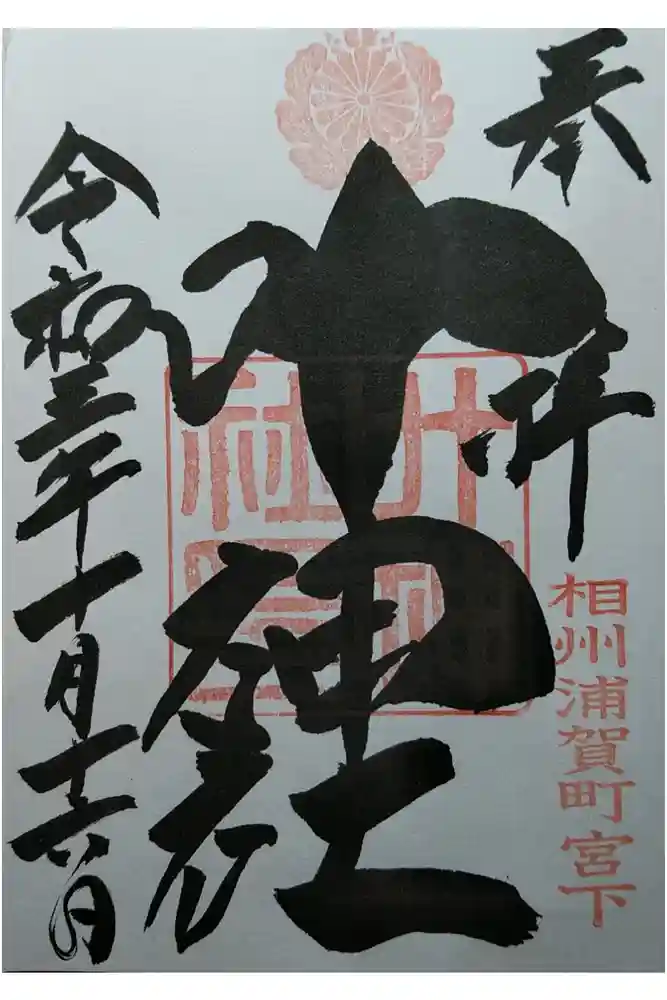 奉拝
相州浦賀町宮下
叶神社
令和三年十月十六日